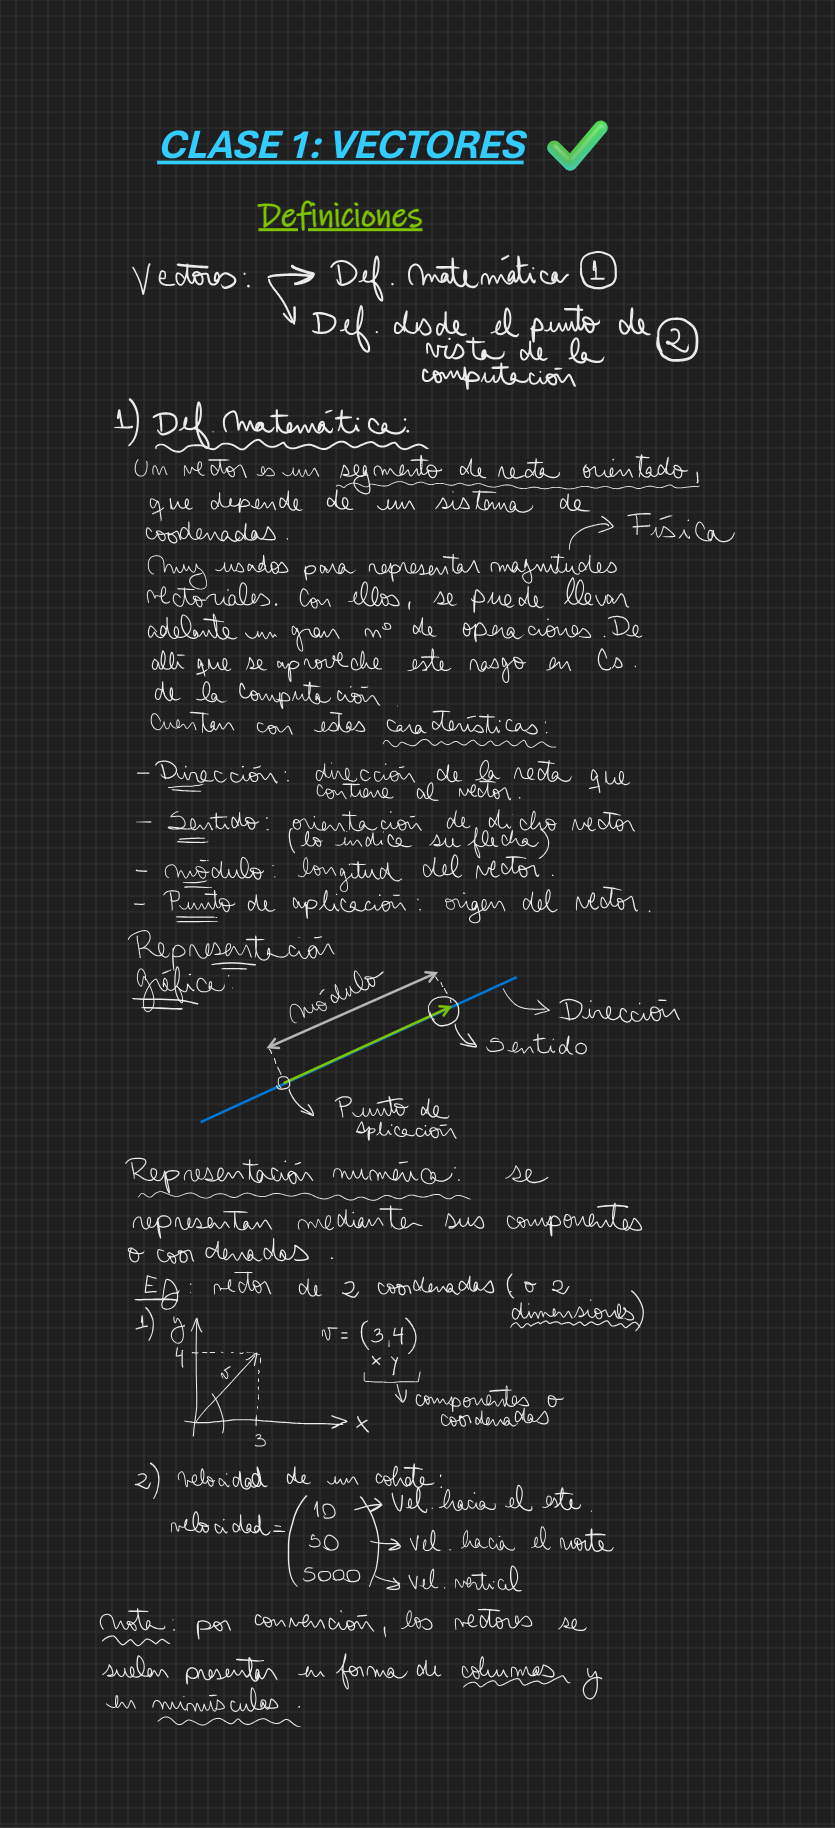 CLASE 1: VECTORES
Definiciones
Vectores: Def. matemática 1
Def. desde el punto de 2
vista de la
computación
1) Def. Matemática:
Un vector es un segmento de recta orientado,
que depende de un sistema de
coordenadas.
Física
Muy usados para representar magnitudes
vectoriales. Con ellos, se puede llevar
adelante un gran nº de operaciones. De
allí que se aproveche este rasgo en Cs.
de la Computación
Cuentan con estas características:
- Dirección: dirección de la recta que
contiene al vector.
- Sentido: orientación de dicho vector
(lo indica su flecha)
- módulo: longitud del vector.
- Punto de aplicación: origen del vector.
Representación
gráfica:
módulo
Dirección
Sentido
Punto de
aplicación
Representación numérica: se
representan mediante sus componentes
o coordenadas.
EJ: vector de 2 coordenadas (o 2
dimensiones)
1) y
4
v
x
3
v = (3,4)
x y
componentes o
coordenadas
2) velocidad de un cohete:
velocidad = (10 → Vel. hacia el este.
50 → vel. hacia el norte
5000) → vel. vertical
Nota: por convención, los vectores se
suelen presentar en forma de columnas y
en minúsculas.